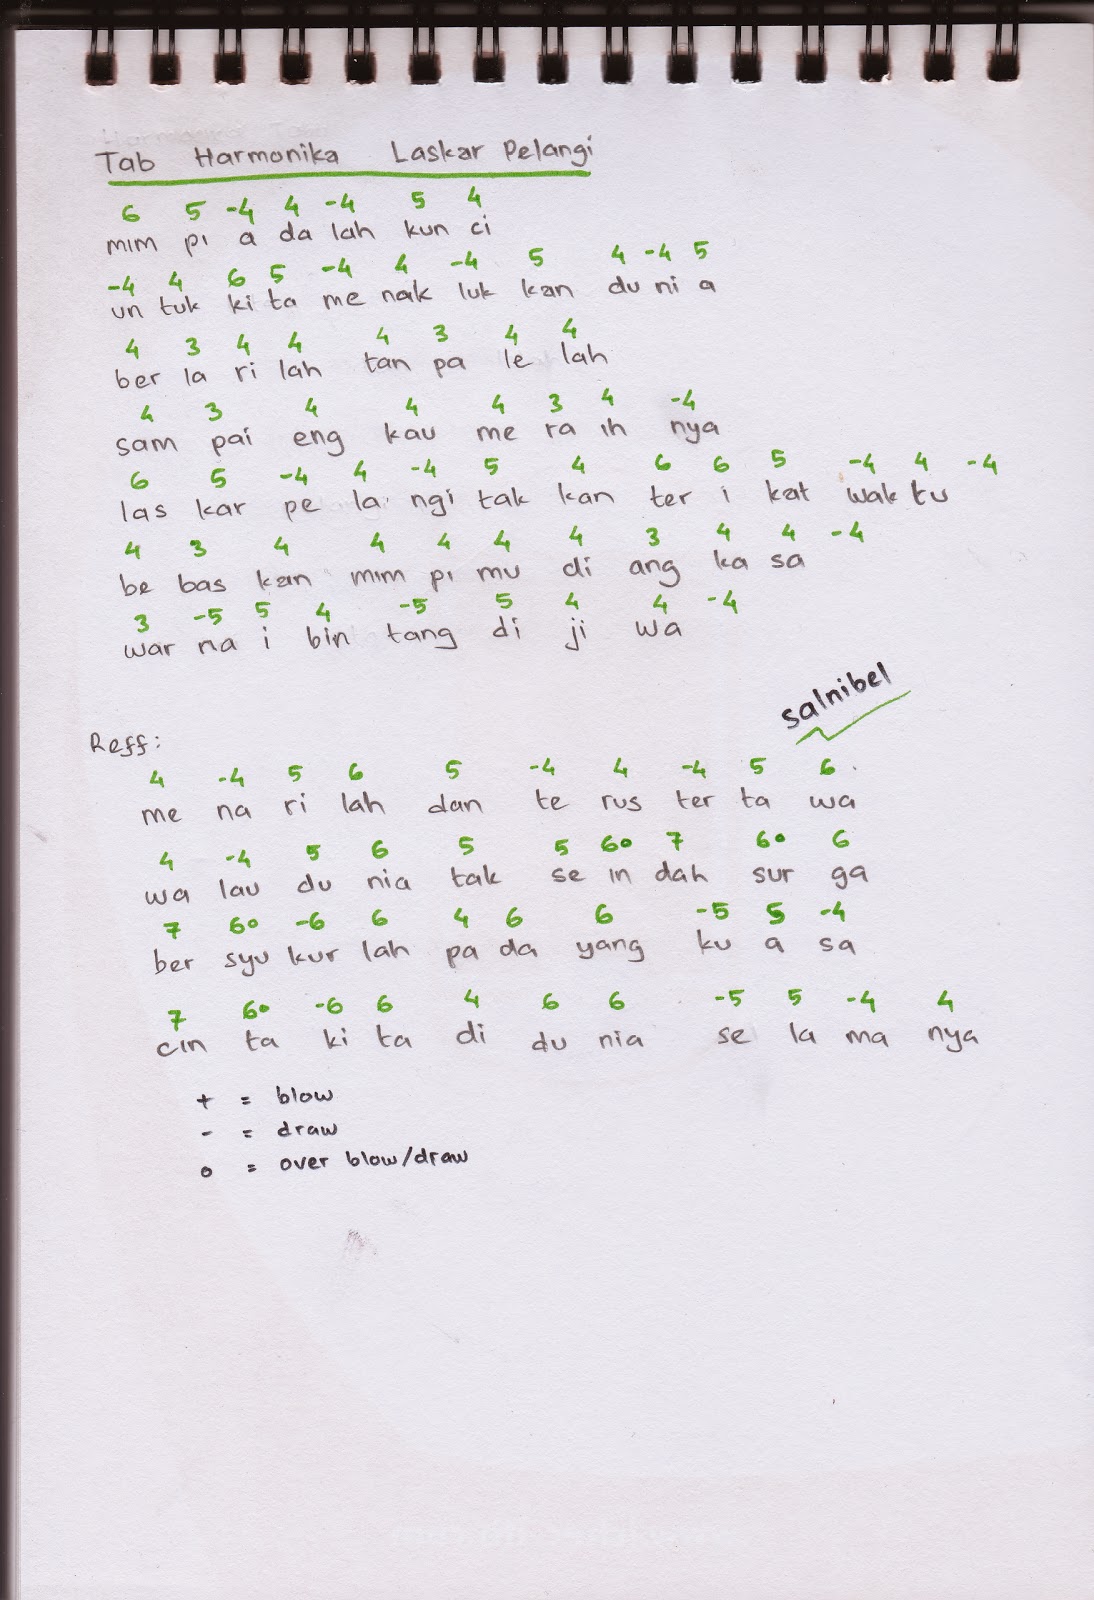 Tab Harmonika Laskar Pelangi
6 5 -4 4 -4 5 4
mim pi a da lah kun ci
-4 4 6 5 -4 4 -4 5 4 -4 5
un tuk ki ta me nak luk kan du ni a
4 3 4 4 4 3 4 4
ber la ri lah tan pa le lah
4 3 4 4 4 3 4 -4
sam pai eng kau me ra ih nya
6 5 -4 4 -4 5 4 6 6 5 -4 4 -4
las kar pe la ngi tak kan ter i kat wak tu
4 3 4 4 4 4 4 3 4 4 -4
be bas kan mim pi mu di ang ka sa
3 -5 5 4 -5 5 4 4 -4
war na i bin tang di ji wa
salnibel
Reff:
4 -4 5 6 5 -4 4 -4 5 6
me na ri lah dan te rus ter ta wa
4 -4 5 6 5 5 6o 7 6o 6
wa lau du nia tak se in dah sur ga
7 6o -6 6 4 6 6 -5 5 -4
ber syu kur lah pa da yang ku a sa
7 6o -6 6 4 6 6 -5 5 -4 4
cin ta ki ta di du nia se la ma nya
+ = blow
- = draw
o = over blow/draw